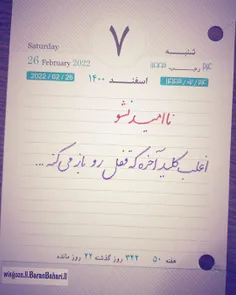 ۷
Saturday
شنبه
26 February 2022
2022 / 02 / 26
اسفند ۱۴۰۰
نا امید نشو
اغلب کلید آخره که قفل رو باز می کنه ...
هفته ۵۰ ۳۴۲ روز گذشته ۲۲ روز مانده
wisgoon.ll.BaranBahari.ll